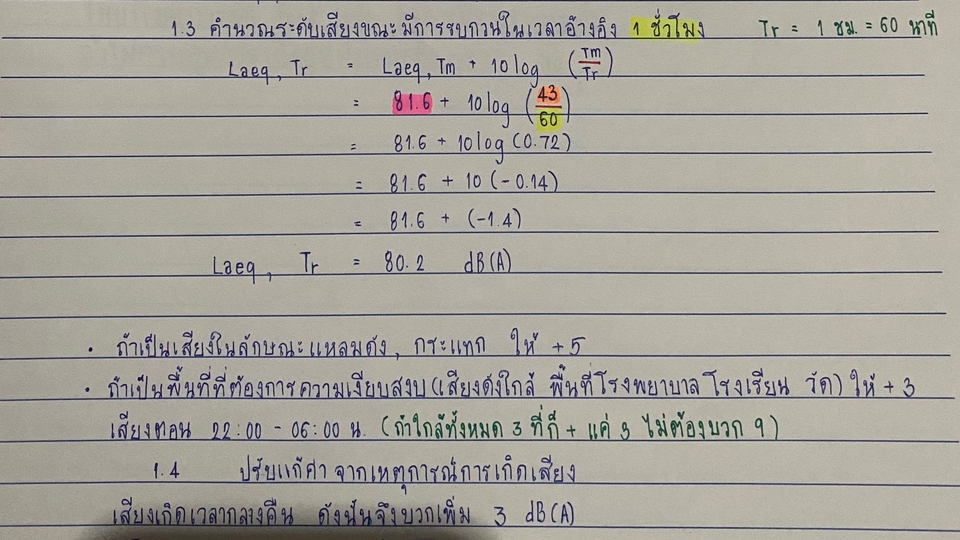 1.3 คำนวณระดับเสียงขณะมีการรบกวนในเวลาอ้างอิง 1 ชั่วโมง Tr = 1 ชม. = 60 นาที
Laeq, Tr = Laeq, Tm + 10log (Tm/Tr)
= 81.6 + 10log (43/60)
= 81.6 + 10log (0.72)
= 81.6 + 10 (-0.14)
= 81.6 + (-1.4)
Laeq, Tr = 80.2 dB(A)
• ถ้าเป็นเสียงในลักษณะแหลมดัง, กระแทก ให้ +5
• ถ้าเป็นพื้นที่ที่ต้องการความเงียบสงบ(เสียงดังใกล้ พื้นที่โรงพยาบาล โรงเรียน วัด) ให้ +3
เสียงตอน 22:00 - 06:00 น. (ถ้าใกล้ทั้งหมด 3 ที่ก็ + แค่ 3 ไม่ต้องบวก 9)
1.4 ปรับแก้ค่า จากเหตุการณ์การเกิดเสียง
เสียงเกิดเวลากลางคืน ดังนั้นจึงบวกเพิ่ม 3 dB(A)